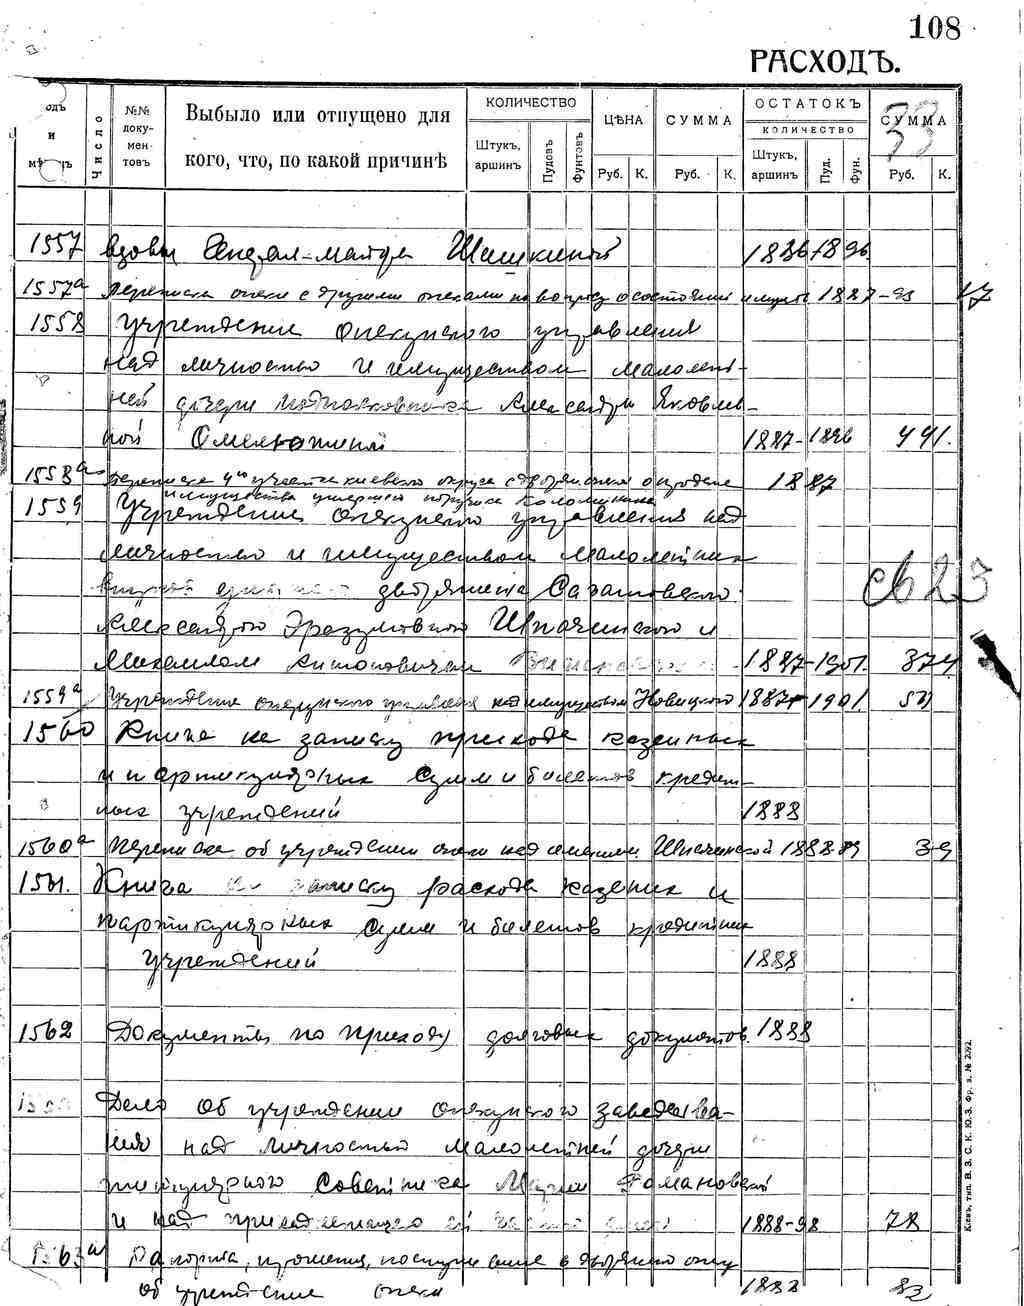 108
РАСХОДЪ.
одъ и мѣсяцъ
Число
№№ доку- мен- товъ
Выбыло или отпущено для
кого, что, по какой причинѣ
КОЛИЧЕСТВО
Штукъ, аршинъ
Пудовъ
Фунтовъ
ЦѢНА
Руб. К.
СУММА
Руб. К.
ОСТАТОКЪ
КОЛИЧЕСТВО
Штукъ, аршинъ
Пуд.
Фун.
СУММА
Руб. К.
53
1557 вдовы Генерал-майора Шишкиной 1886-1896
1557а Переписка опеки с другими опеками по вопросу о состоянии имущ 1887-93 17
1558 Учреждение опекунского управления
над личностью и имуществом малолет-
ней дочери подполковника Александры Яковлев-
ной Омелютиной 1887-1896 441.
1558а переписка 4го участка киевского округа с дворян опекой о продаже 1887
имущества умершего поручика Коломийцева
1559 Учреждение опекунского управления над
личностью и имуществом малолетних
дворянина Сахановского
Александра Эразмовского Шпачинского и
Михаилом Антоновичем 1887-1901. 374
1559а Учреждение опекунского управления над имуществом Новицкого 1887-1901. 50
1560 Книга на записку прихода казенных
и партикулярных сумм и билетов кредит-
ных учреждений 1888
1560а Переписка об учреждении опеки над имением Шпачинской 1888 89 39
1561. Книга на записку расхода казенных и
партикулярных сумм и билетов кредитных
учреждений 1888
св 23
1562 Документы по приходу долговых документов 1888
Дело об учреждении опекунского заведова-
ния над личностью малолетней дочери
титулярного Советника Марии Романовской
и над принадлежащего ей 1888-98 78
1563а Рапорта, прошения, поступившие в дворянскую опеку
об учреждение опеки 1888 82
Кіевъ, тип. В. З. С. К. Ю.-З. Фр. з. № 2092